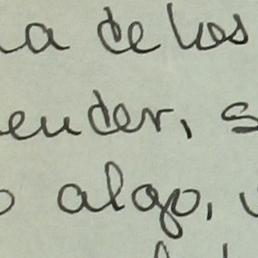 a de los
ender, s
o algo,